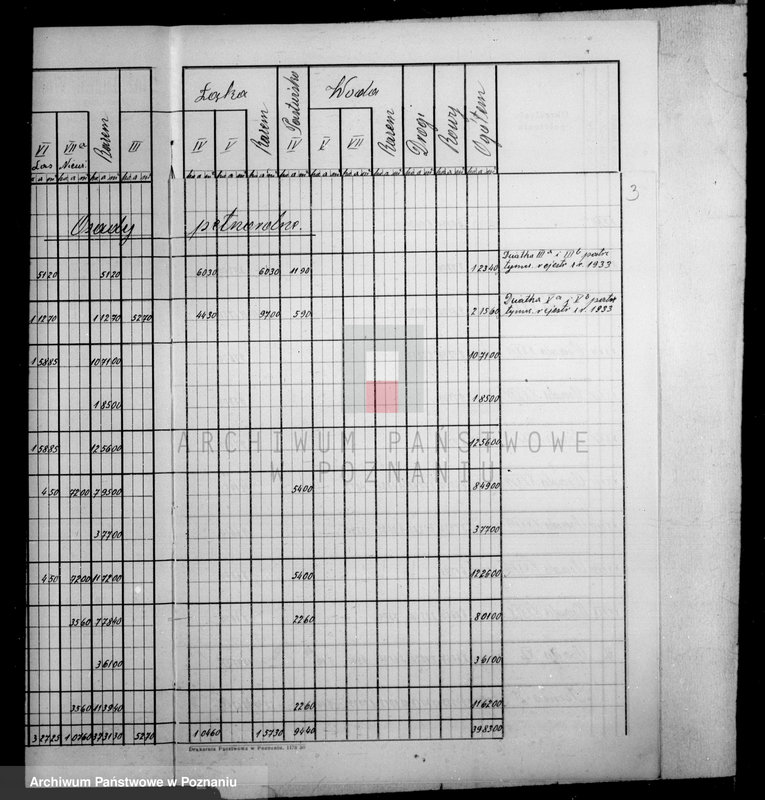 Łąka Woda
VI VII a Razem III IV V Razem IV Pastwisko V VII Razem Drogi Rowy Ogółem
Las Nieuż.
ha a m² ha a m² ha a m² ha a m² ha a m² ha a m² ha a m² ha a m² ha a m² ha a m² ha a m² ha a m² ha a m² ha a m²
3
Osady pełnorolne.
5120 5120 6030 6030 1190 12340 Działka III a i III b
rejestr z r. 1933
11270 11270 5270 4430 9700 590 21560 Działka V a i V b
rejestr z r. 1933
15885 107100 107100
18500 18500
15885 125600 125600
ARCHIWUM PAŃSTWOWE
W POZNANIU
450 7200 79500 5400 84900
37700 37700
450 7200 117200 5400 122600
3560 77840 2260 80100
36100 36100
3560 113940 2260 116200
32725 10760 373130 5270 10460 15730 9440 398300
Drukarnia Państwowa w Poznaniu.
Archiwum Państwowe w Poznaniu